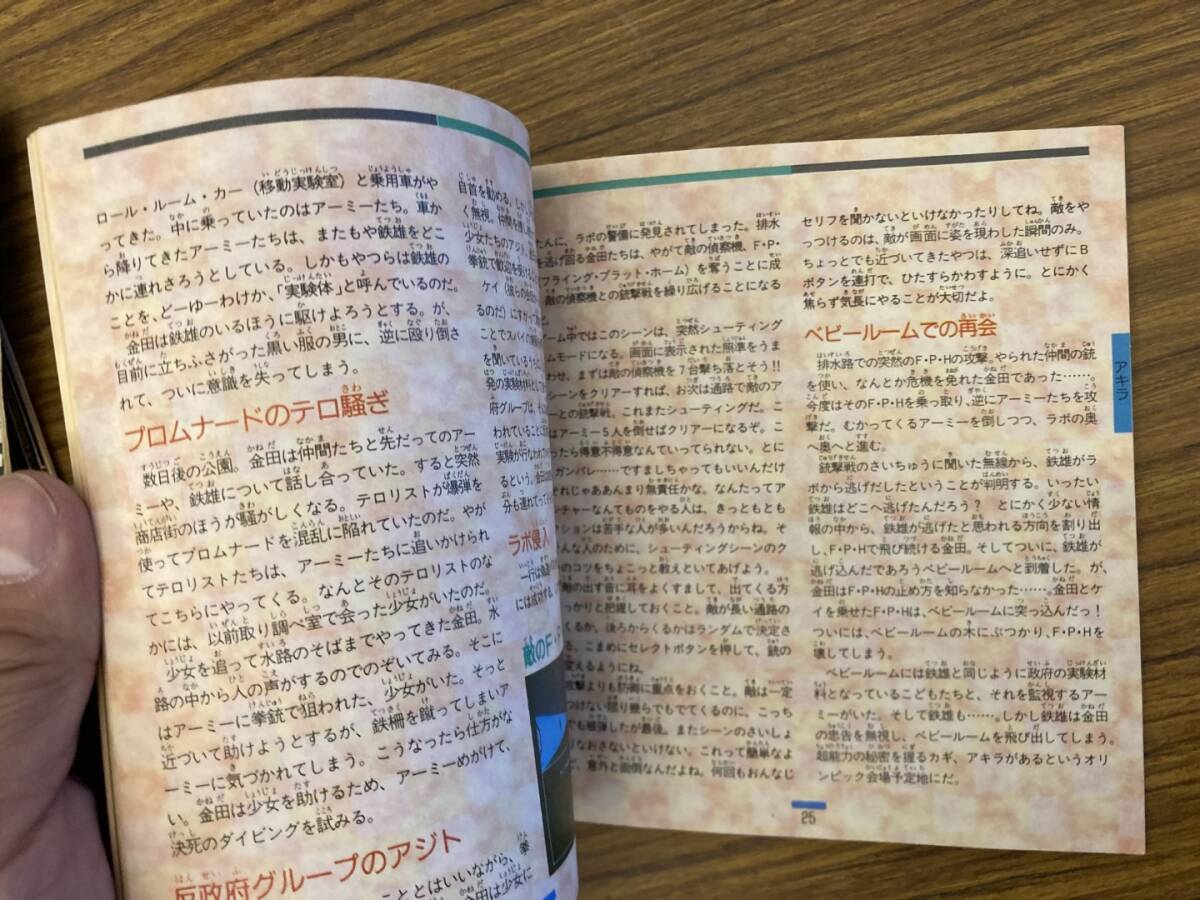 ロール・ルーム・カー（移動実験室）と乗用車がや
ってきた。中に乗っていたのはアーミーたち。車か
ら降りてきたアーミーたちは、またもや鉄雄をどこ
かに連れさろうとしている。しかもやつらは鉄雄の
ことを、どーゆーわけか、「実験体」と呼んでいるのだ。
金田は鉄雄のいるほうに駆けようとする。が、
目前に立ちふさがった黒い服の男に、逆に殴り倒さ
れて、ついに意識を失ってしまう。
プロムナードのテロ騒ぎ
数日後の公園。金田は仲間たちと先だってのアー
ミーや、鉄雄について話し合っていた。すると突然
商店街のほうが騒がしくなる。テロリストが爆弾を
使ってプロムナードを混乱に陥れていたのだ。やが
てテロリストたちは、アーミーたちに追いかけられ
てこちらにやってくる。なんとそのテロリストのな
かには、以前取り調べ室で会った少女がいたのだ。
少女を追って水路のそばまでやってきた金田。水
路の中から人の声がするのでのぞいてみる。そこに
はアーミーに拳銃で狙われた、少女がいた。そっと
近づいて助けようとするが、鉄柵を蹴ってしまいア
ーミーに気づかれてしまう。こうなったら仕方がな
い。金田は少女を助けるため、アーミーめがけて、
決死のダイビングを試みる。
反政府グループのアジト
こととはいいながら、拳
金田は少女に
目前を
く無視。仲間を
少女たちのアジト。
拳銃で歓迎を受ける
ケイ（彼らの
るのだ）にすがって
ことでスパイの
を聞いている
発の実験材料
府グループは、
われていること
実験が行なわれて
るという。
分も連れてって
ラボ侵入
一行は
には成功する
敵のF・
たんに、ラボの警備に発見されてしまった。排水
を逃げ回る金田たちは、やがて敵の偵察機、F・P・
フライング・プラット・ホーム）を奪うことに成
敵の偵察機との銃撃戦を繰り広げることになる
ーム中ではこのシーンは、突然シューティング
ムモードになる。画面に表示された照準をうま
わせ、まずは敵の偵察機を7台撃ち落とそう!!
シーンをクリアーすれば、お次は通路で敵のア
ーとの銃撃戦。これまたシューティングだ。こ
はアーミー5人を倒せばクリアーになるぞ。こ
ったら得意不得意なんていってられない。とに
ガンバレ……ですましちゃってもいいんだけ
れじゃああんまり無責任かな。なんたってア
チャーなんてものをやる人は、きっともとも
ションは苦手な人が多いんだろうからね。そ
んな人のために、シューティングシーンのク
のコツをちょこっと教えといてあげよう。
敵の出す音に耳をよくすまして、出てくる方
っかりと把握しておくこと。敵が長い通路の
くるか、後ろからくるかはランダムで決定さ
、こまめにセレクトボタンを押して、銃の
変えるようにね。
攻撃よりも防御に重点をおくこと。敵は一定
つけない限り幾らでもでてくるのに、こっち
でも被弾したが最後。またシーンのさいしょ
りなおさないといけない。これって簡単なよ
ど、意外と面倒なんだよね。何回もおんなじ
セリフを聞かないといけなかったりしてね。敵をや
っつけるのは、敵が画面に姿を現わした瞬間のみ。
ちょっとでも近づいてきたやつは、深追いせずにB
ボタンを連打で、ひたすらかわすように。とにかく
焦らず気長にやることが大切だよ。
ベビールームでの再会
排水路での突然のF・P・Hの攻撃。やられた仲間の銃
を使い、なんとか危機を免れた金田であった……。
今度はそのF・P・Hを乗っ取り、逆にアーミーたちを攻
撃だ。むかってくるアーミーを倒しつつ、ラボの奥
へ奥へと進む。
銃撃戦のさいちゅうに聞いた無線から、鉄雄がラ
ボから逃げだしたということが判明する。いったい
鉄雄はどこへ逃げたんだろう？とにかく少ない情
報の中から、鉄雄が逃げたと思われる方向を割り出
し、F・P・Hで飛び続ける金田。そしてついに、鉄雄が
逃げ込んだであろうベビールームへと到着した。が、
金田はF・P・Hの止め方を知らなかった……。金田とケ
イを乗せたF・P・Hは、ベビールームに突っ込んだっ！
ついには、ベビールームの木にぶつかり、F・P・Hを
壊してしまう。
ベビールームには鉄雄と同じように政府の実験材
料となっているこどもたちと、それを監視するアー
ミーがいた。そして鉄雄も……。しかし鉄雄は金田
の忠告を無視し、ベビールームを飛び出してしまう。
超能力の秘密を握るカギ、アキラがあるというオリ
ンピック会場予定地にだ。
アキラ
25